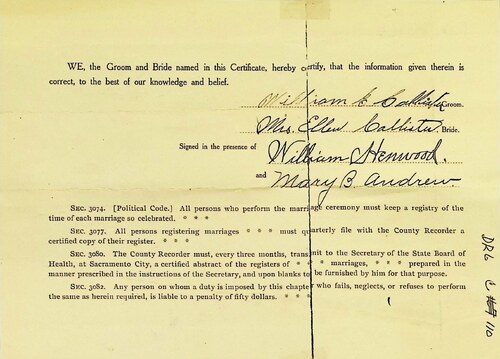 WE, the Groom and Bride named in this Certificate, hereby certify, that the information given therein is
correct, to the best of our knowledge and belief.
William C Callister Groom.
Mrs. Ellen Callister Bride.
Signed in the presence of William Henwood.
and Mary B. Andrew.
SEC. 3074. [Political Code.] All persons who perform the marriage ceremony must keep a registry of
the time of each marriage so celebrated. * * *
SEC. 3077. All persons registering marriages * * * must quarterly file with the County Recorder
a certified copy of their register. * * *
SEC. 3080. The County Recorder must, every three months, transmit to the Secretary of the State Board of
Health, at Sacramento City, a certified abstract of the registers of * * * marriages, * * * prepared in the
manner prescribed in the instructions of the Secretary, and upon blanks to be furnished by him for that purpose.
SEC. 3082. Any person on whom a duty is imposed by this chapter who fails, neglects, or refuses to perform
the same as herein required, is liable to a penalty of fifty dollars. * * *
DR6 C 110